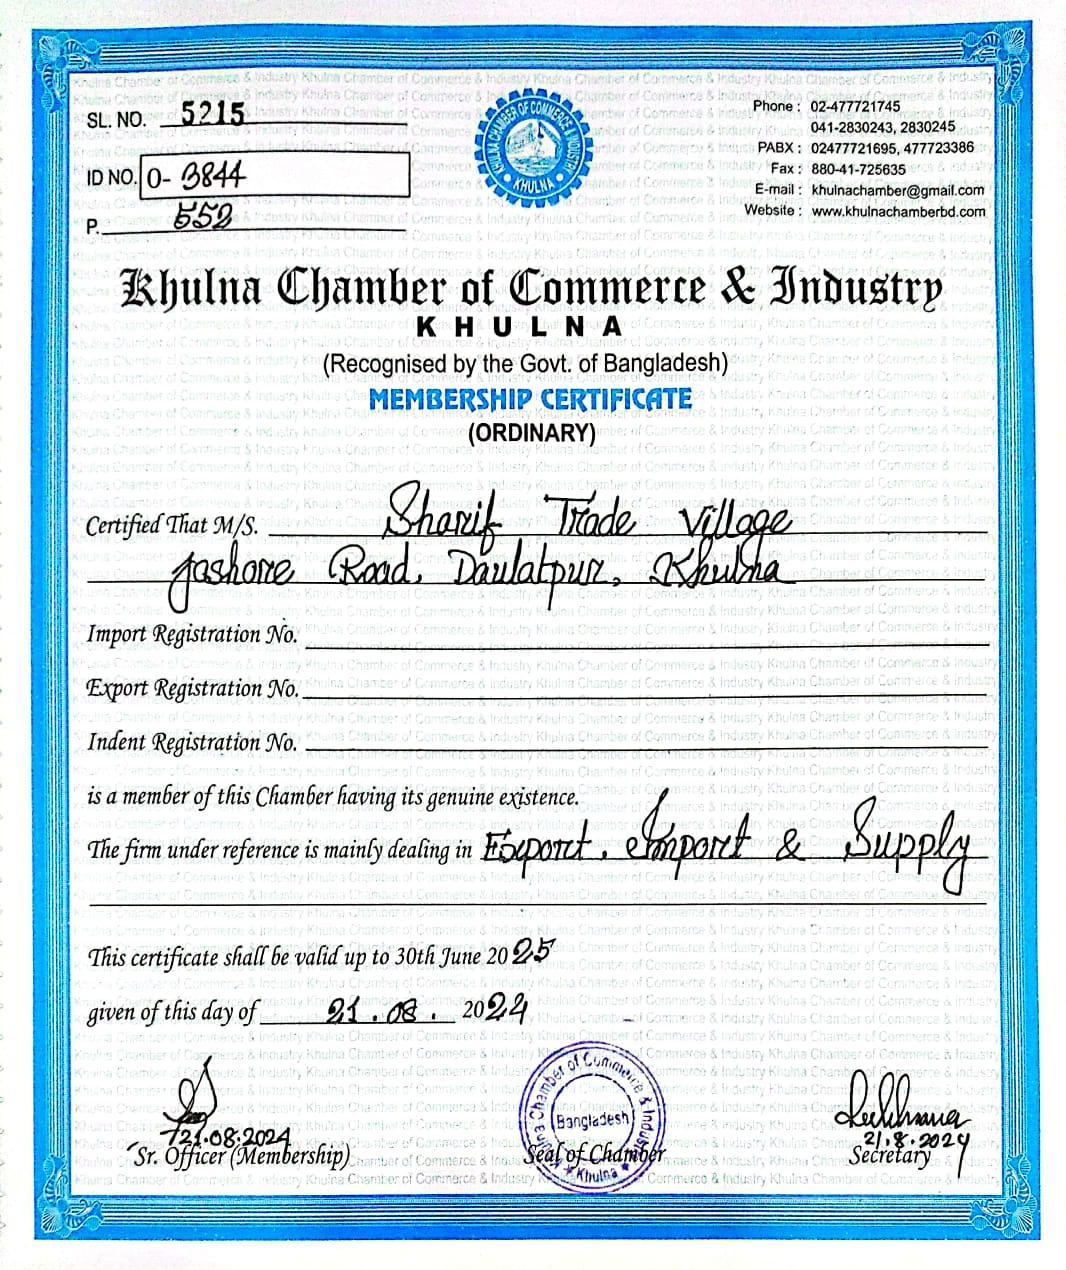 SL. NO. 5215
ID NO. O- 3844
P. 552
KHULNA CHAMBER OF COMMERCE & INDUSTRY
KHULNA
Phone : 02-477721745
041-2830243, 2830245
PABX : 02477721695, 477723386
Fax : 880-41-725635
E-mail : khulnachamber@gmail.com
Website : www.khulnachamberbd.com
Khulna Chamber of Commerce & Industry
KHULNA
(Recognised by the Govt. of Bangladesh)
MEMBERSHIP CERTIFICATE
(ORDINARY)
Certified That M/S. Sharif Trade Village
Jashore Road, Daulatpur, Khulna
Import Registration No.
Export Registration No.
Indent Registration No.
is a member of this Chamber having its genuine existence.
The firm under reference is mainly dealing in Export, Import & Supply
This certificate shall be valid up to 30th June 2025
given of this day of 21.08. 2024
21.08.2024
Sr. Officer (Membership)
Khulna Chamber of Commerce & Industry
Bangladesh
Khulna
Seal of Chamber
21.8.2024
Secretary